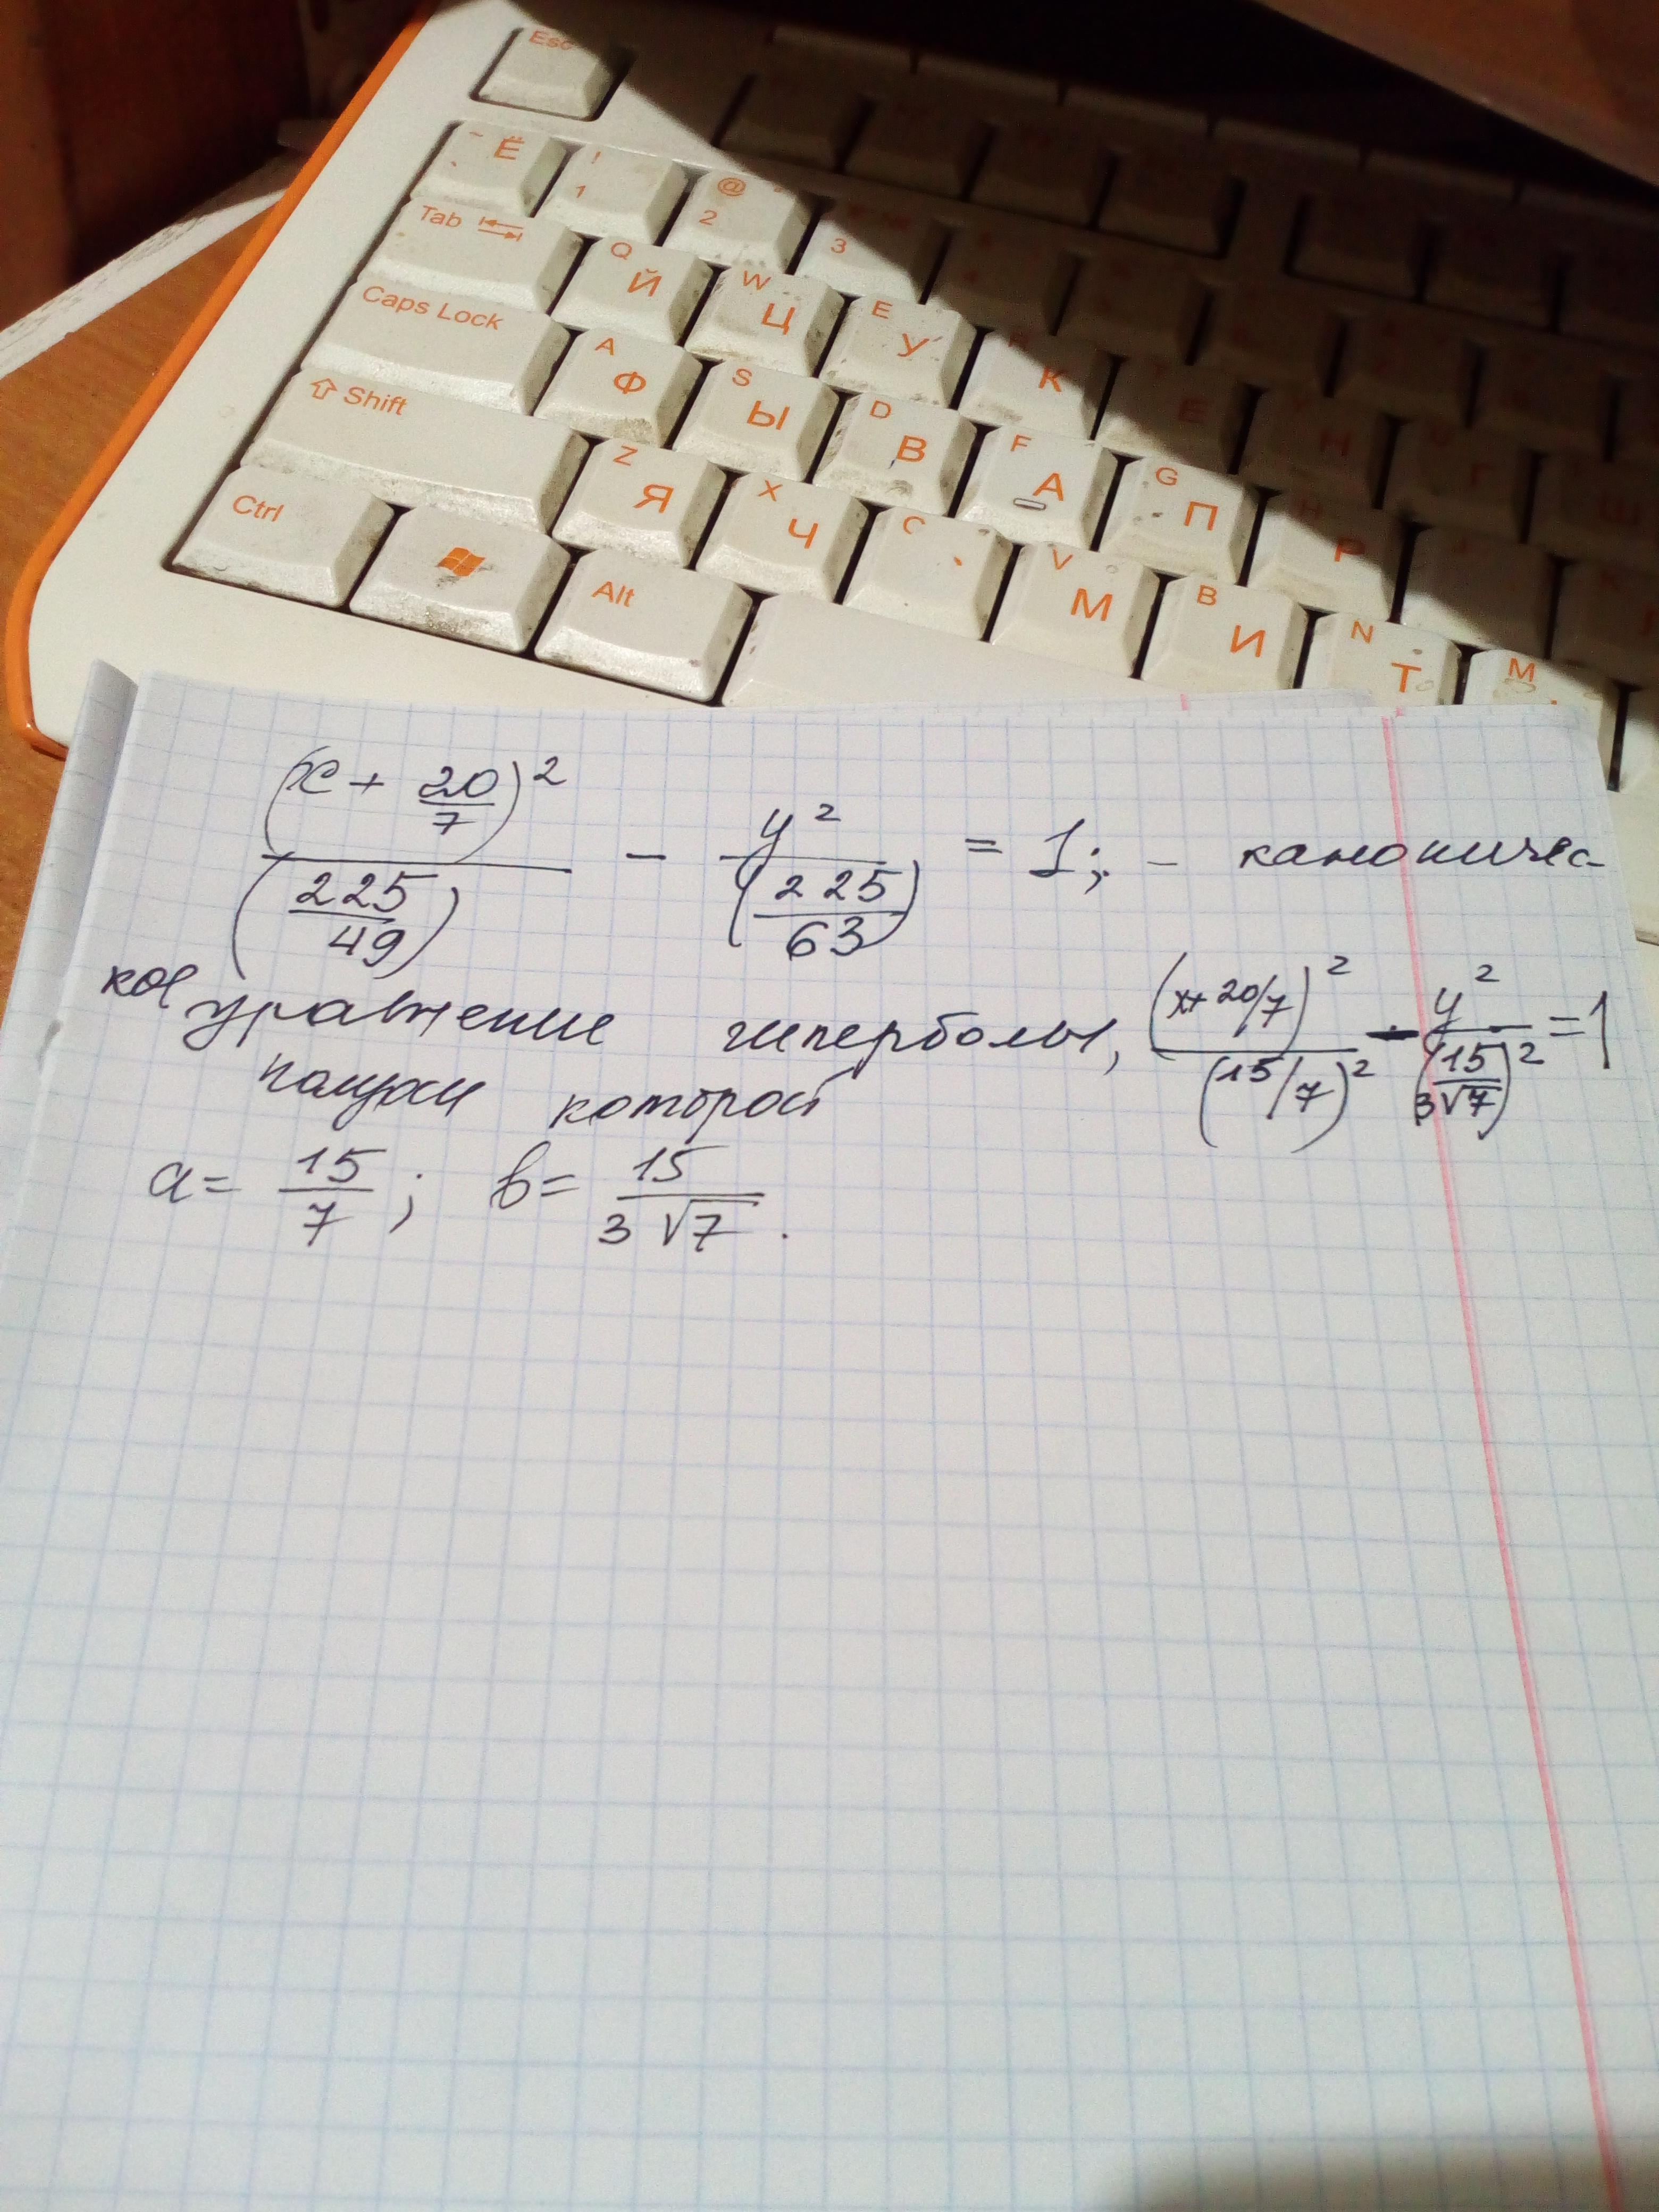 Esc
~ Ё ! 1 @ 2 3
Tab Q Й W Ц E У К
Caps Lock A Ф S Ы D В F А G П Р
Shift Z Я X Ч C V М B И N Т M
Ctrl Alt
(x + 20/7)² / (225/49) - y² / (225/63) = 1; - каноничес-
кое уравнение гиперболы, (x+20/7)² / (15/7)² - y² / (15/3√7)² = 1
полуоси которой
a = 15/7; b = 15/3√7.